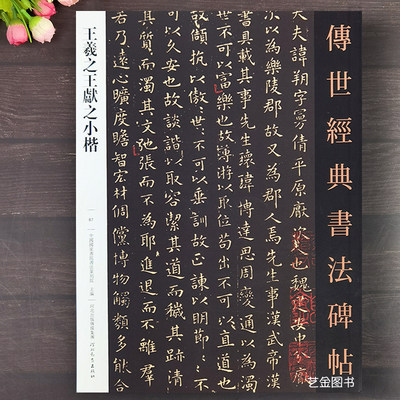 傳世經典書法碑帖
大夫諱朔字曼倩平原厭次人也魏建安中分厭
次以為樂陵郡故又為郡人焉先生事漢武帝漢
書具載其事先生瓌瑋博達思周變通以為濁
世不可以富樂也故薄遊以取位苟出不可以直道也
故傾抗以傲世:不可以垂訓故正諫以明節::不
可以久安也故談諧以取容潔其道而穢其跡清
其質而濁其文弛張而不為耶進退而不離群
若乃遠心曠度贍智宏材倜儻博物觸類多能
王羲之王獻之小楷
主編
艺金图书